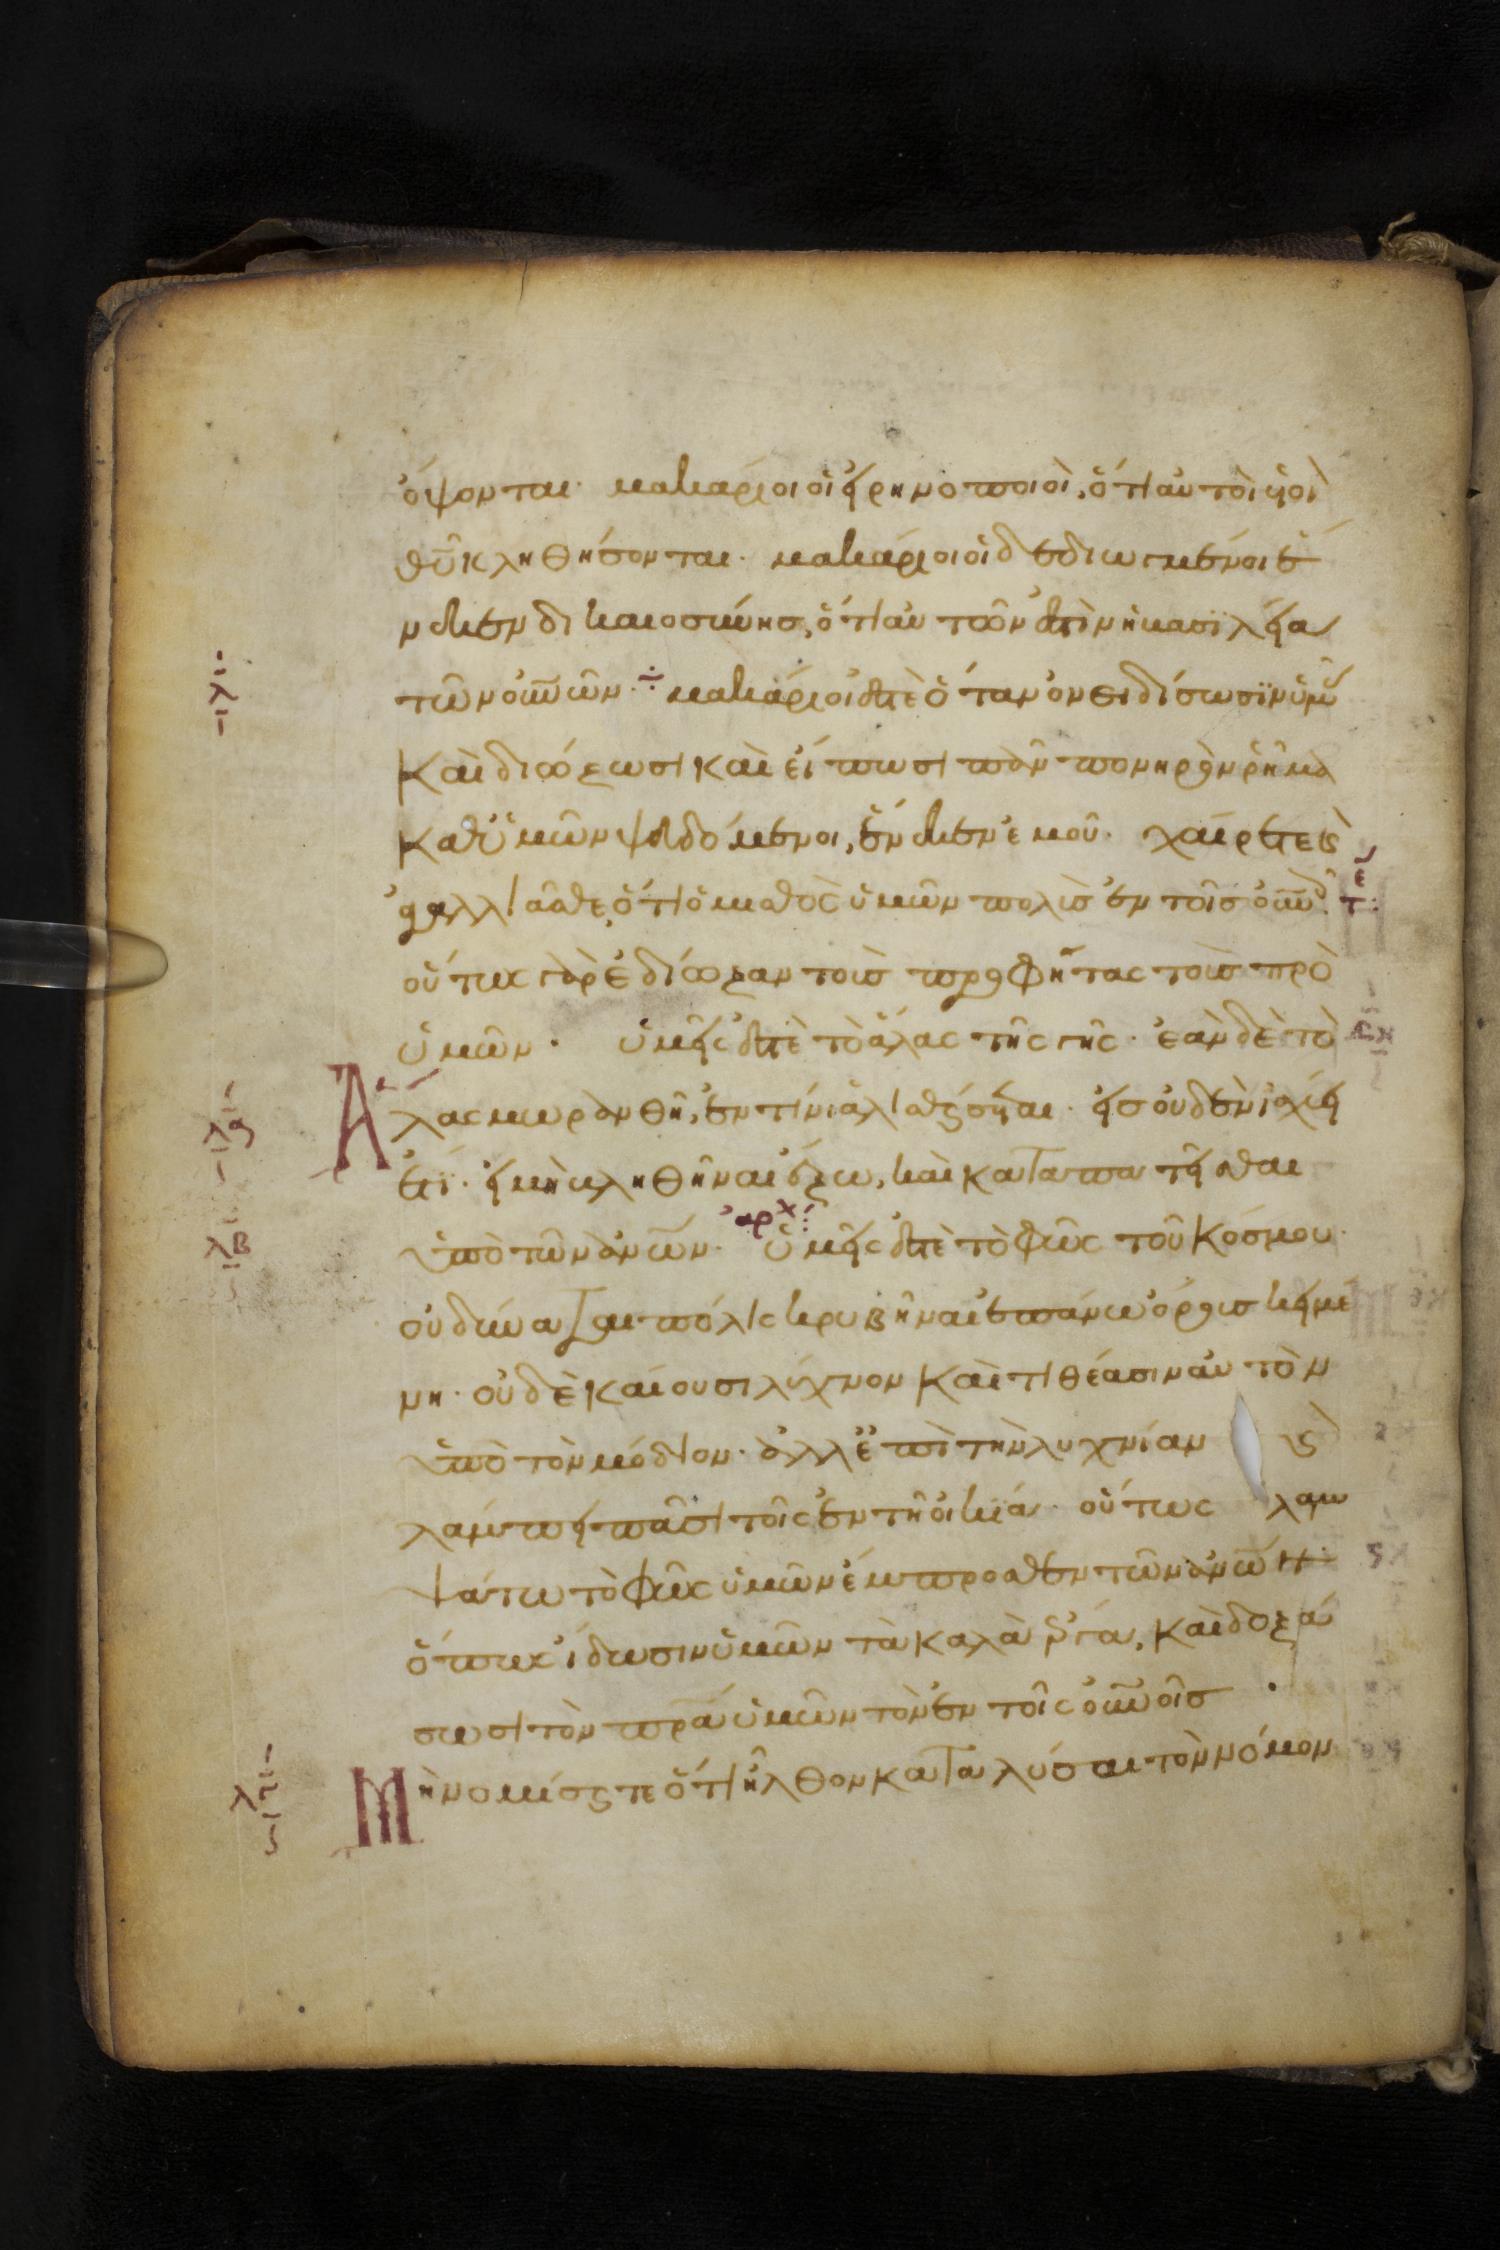 ὄψονται· μακάριοι οἱ εἰρηνοποιοὶ, ὅτι αὐτοὶ υἱοὶ
θῦ κληθήσονται· μακάριοι οἱ δεδιωγμένοι ἕ
νεκεν δικαιοσύνησ, ὅτι αὐτῶν ἐστὶν ἡ βασιλεία
τῶν οὐνῶν· ÷ μακάριοί ἐστὲ ὅταν ὀνειδίσωσϊν ὑμᾶς
λ
καὶ διώξωσι καὶ εἴπωσι πᾶν πονηρὸν ῥῆμα
καθ' ὑμῶν ψευδόμενοι, ἕνεκεν ἐμοῦ· χαίρετε καὶ
ἀγαλλιᾶσθε, ὅτι ὁ μισθὸς ὑμῶν πολὺσ ἐν τοῖσ οὐνοῖς· τε
οὕτως γὰρ ἐδίωξαν τοὺσ προφήτας τοὺσ πρὸ
ὑμῶν· ὑμεῖς ἐστὲ τὸ ἅλας τῆς γῆς· ἐὰν δὲ τὸ
ἅλας μωρανθῆ, ἐν τίνι ἁλισθήσεται· εἰσ οὐδὲν ἰσχύει
λα
ἔτϊ· εἰ μὴ βληθῆναι ἔξω, καὶ καταπατεῖσθαι
ὑπὸ τῶν ἀνων· ἀρχ ὑμεῖς ἐστὲ τὸ φῶς τοῦ κόσμου·
λβ
οὐ δύναται πόλις κρυβῆναι ἐπάνω ὄρους κειμέ
νη· οὐδὲ καίουσι λύχνον καὶ τιθέασιν αὐτὸν
ὑπὸ τὸν μόδιον· ἀλλ' ἐπὶ τὴν λυχνίαν καὶ
λάμπει πᾶσι τοῖς ἐν τῆ οἰκία· οὕτως λαμ
ψάτω τὸ φῶς ὑμῶν ἔμπροσθεν τῶν ἀνων·
ὅπως ἴδωσιν ὑμῶν τὰ καλὰ ἔργα, καὶ δοξά
σωσι τὸν πρα ὑμῶν τὸν ἐν τοῖς οὐνοῖσ·
Μὴ νομίσητε ὅτι ἦλθον καταλύσαι τὸν νόμον
λγ